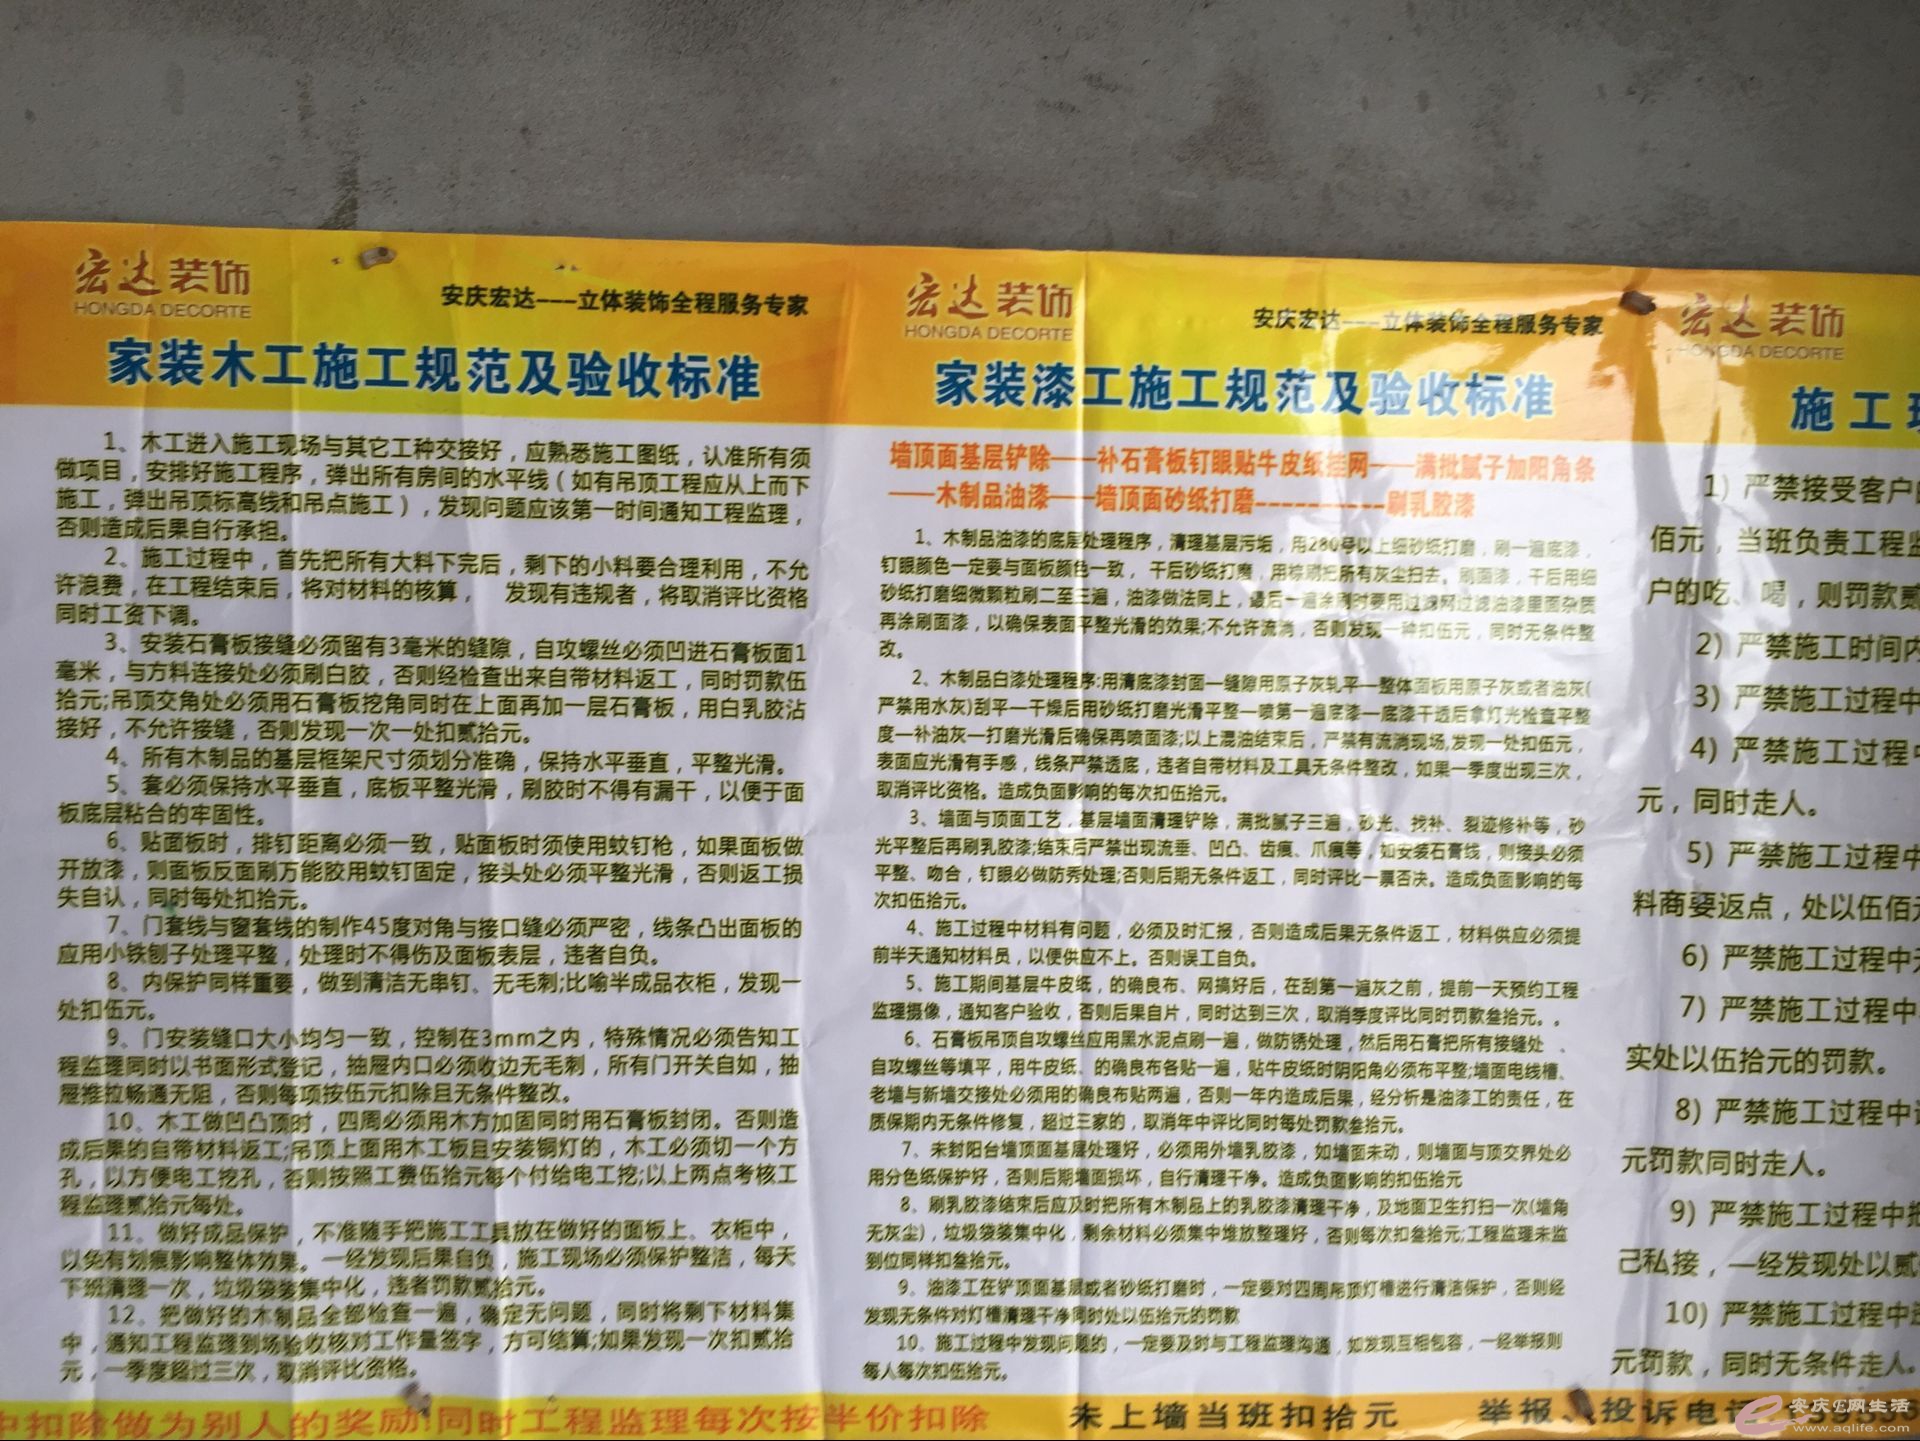 宏达装饰
HONGDA DECORTE
安庆宏达---立体装饰全程服务专家
家装木工施工规范及验收标准
1、木工进入施工现场与其它工种交接好，应熟悉施工图纸，认准所有须
做项目，安排好施工程序，弹出所有房间的水平线（如有吊顶工程应从上而下
施工，弹出吊顶标高线和吊点施工），发现问题应该第一时间通知工程监理，
否则造成后果自行承担。
2、施工过程中，首先把所有大料下完后，剩下的小料要合理利用，不允
许浪费，在工程结束后，将对材料的核算， 发现有违规者，将取消评比资格
同时工资下调。
3、安装石膏板接缝必须留有3毫米的缝隙，自攻螺丝必须凹进石膏板面1
毫米，与方料连接处必须刷白胶，否则经检查出来自带材料返工，同时罚款伍
拾元;吊顶交角处必须用石膏板挖角同时在上面再加一层石膏板，用白乳胶沾
接好，不允许接缝，否则发现一次一处扣贰拾元。
4、所有木制品的基层框架尺寸须划分准确，保持水平垂直，平整光滑。
5、套必须保持水平垂直，底板平整光滑，刷胶时不得有漏干，以便于面
板底层粘合的牢固性。
6、贴面板时，排钉距离必须一致，贴面板时须使用蚊钉枪，如果面板做
开放漆，则面板反面刷万能胶用蚊钉固定，接头处必须平整光滑，否则返工损
失自认，同时每处扣拾元。
7、门套线与窗套线的制作45度对角与接口缝必须严密，线条凸出面板的
应用小铁刨子处理平整，处理时不得伤及面板表层，违者自负。
8、内保护同样重要，做到清洁无串钉、无毛刺;比喻半成品衣柜，发现一
处扣伍元。
9、门安装缝口大小均匀一致，控制在3mm之内，特殊情况必须告知工
程监理同时以书面形式登记，抽屉内口必须收边无毛刺，所有门开关自如，抽
屉推拉畅通无阻，否则每项按伍元扣除且无条件整改。
10、木工做凹凸顶时，四周必须用木方加固同时用石膏板封闭。否则造
成后果的自带材料返工;吊顶上面用木工板且安装铜灯的，木工必须切一个方
孔，以方便电工挖孔，否则按照工费伍拾元每个付给电工挖;以上两点考核工
程监理贰拾元每处。
11、做好成品保护，不准随手把施工工具放在做好的面板上、衣柜中，
以免有划痕影响整体效果。一经发现后果自负，施工现场必须保护整洁，每天
下班清理一次，垃圾袋装集中化，违者罚款贰拾元。
12、把做好的木制品全部检查一遍，确定无问题，同时将剩下材料集
中，通知工程监理到场验收核对工作量签字，方可结算;如果发现一次扣贰拾
元，一季度超过三次，取消评比资格。
宏达装饰
HONGDA DECORTE
安庆宏达---立体装饰全程服务专家
家装漆工施工规范及验收标准
墙顶面基层铲除——补石膏板钉眼贴牛皮纸挂网——满批腻子加阳角条
——木制品油漆——墙顶面砂纸打磨-----------刷乳胶漆
1、木制品油漆的底层处理程序，清理基层污垢，用280号以上细砂纸打磨，刷一遍底漆，
钉眼颜色一定要与面板颜色一致， 干后砂纸打磨，用棕刷把所有灰尘扫去。刷面漆，干后用细
砂纸打磨细微颗粒刷二至三遍，油漆做法同上，最后一遍涂刷时要用过滤网过滤油漆里面杂质
再涂刷面漆，以确保表面平整光滑的效果;不允许流淌，否则发现一种扣伍元，同时无条件整
改。
2、木制品白漆处理程序:用清底漆封面—缝隙用原子灰轧平—整体面板用原子灰或者油灰(
严禁用水灰)刮平—干燥后用砂纸打磨光滑平整—喷第一遍底漆—底漆干透后拿灯光检查平整
度—补油灰—打磨光滑后确保再喷面漆;以上混油结束后，严禁有流淌现场,发现一处扣伍元，
表面应光滑有手感，线条严禁透底，违者自带材料及工具无条件整改，如果一季度出现三次，
取消评比资格。造成负面影响的每次扣伍拾元。
3、墙面与顶面工艺，基层墙面清理铲除，满批腻子三遍，砂光、找补、裂迹修补等，砂
光平整后再刷乳胶漆;结束后严禁出现流垂、凹凸、齿痕、爪痕等，如安装石膏线，则接头必须
平整、吻合，钉眼必做防秀处理;否则后期无条件返工，同时评比一票否决。造成负面影响的每
次扣伍拾元。
4、施工过程中材料有问题，必须及时汇报，否则造成后果无条件返工，材料供应必须提
前半天通知材料员，以便供应不上。否则误工自负。
5、施工期间基层牛皮纸，的确良布、网搞好后，在刮第一遍灰之前，提前一天预约工程
监理摄像，通知客户验收，否则后果自片，同时达到三次，取消季度评比同时罚款叁拾元。。
6、石膏板吊顶自攻螺丝应用黑水泥点刷一遍，做防锈处理，然后用石膏把所有接缝处 、
自攻螺丝等填平，用牛皮纸、的确良布各贴一遍，贴牛皮纸时阴阳角必须布平整;墙面电线槽、
老墙与新墙交接处必须用的确良布贴两遍，否则一年内造成后果，经分析是油漆工的责任，在
质保期内无条件修复，超过三家的，取消年中评比同时每处罚款叁拾元。
7、未封阳台墙顶面基层处理好，必须用外墙乳胶漆，如墙面未动，则墙面与顶交界处必
用分色纸保护好，否则后期墙面损坏，自行清理干净。造成负面影响的扣伍拾元
8、刷乳胶漆结束后应及时把所有木制品上的乳胶漆清理干净，及地面卫生打扫一次(墙角
无灰尘)，垃圾袋装集中化，剩余材料必须集中堆放整理好，否则每次扣叁拾元;工程监理未监
到位同样扣叁拾元。
9、油漆工在铲顶面基层或者砂纸打磨时，一定要对四周吊顶灯槽进行清洁保护，否则经
发现无条件对灯槽清理干净同时处以伍拾元的罚款
10、施工过程中发现问题的，一定要及时与工程监理沟通，如发现互相包容，一经举报则
每人每次扣伍拾元。
宏达装饰
HONGDA DECORTE
施工现
1）严禁接受客户的
佰元，当班负责工程监
户的吃、喝，则罚款贰
2）严禁施工时间内
3）严禁施工过程中
4）严禁施工过程中
元，同时走人。
5）严禁施工过程中
料商要返点，处以伍佰元
6）严禁施工过程中
7）严禁施工过程中
实处以伍拾元的罚款。
8）严禁施工过程中
元罚款同时走人。
9）严禁施工过程中把
己私接，一经发现处以贰
10）严禁施工过程中
元罚款，同时无条件走人。
中扣除做为别人的奖励!同时工程监理每次按半价扣除 未上墙当班扣拾元 举报、投诉电话
安庆E网生活
www.aqlife.com